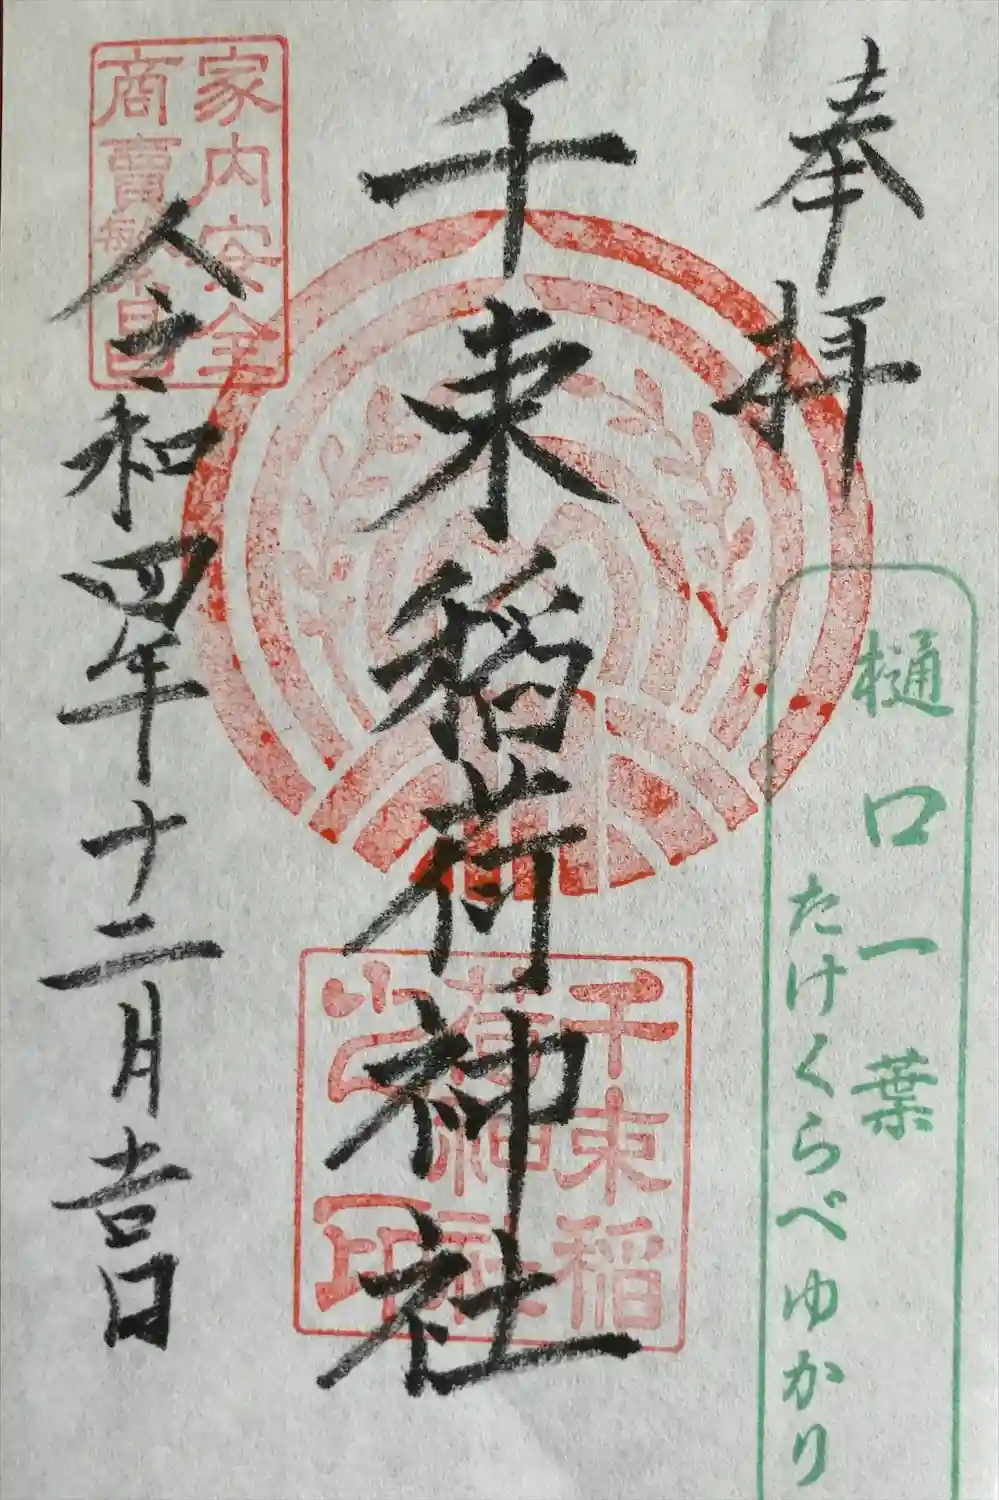 奉拝
樋口一葉
たけくらべゆかり
千束稲荷神社
千束稲
荷神社
之印
家内安全
商賣繁昌
令和四年十二月吉日